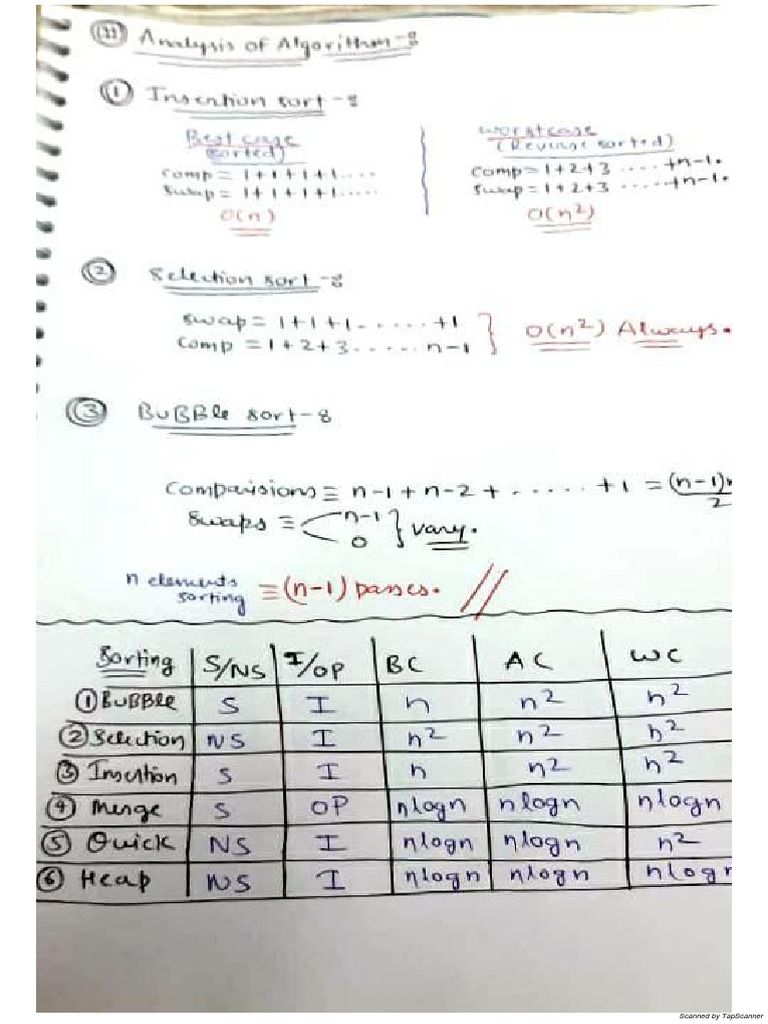 11 Analysis of Algorithm-8
1 Insertion sort-8
Best case
(sorted)
Comp = 1+1+1+1.....
Swap = 1+1+1+1.....
O(n)
Worstcase
(Reverse sorted)
Comp = 1+2+3 ..... +n-1.
Swap = 1+2+3 ..... +n-1.
O(n²)
2 Selection sort-8
Swap = 1+1+1......+1
Comp = 1+2+3...... n-1
} O(n²) Always.
3 BuBBle sort-8
Compaisions ≡ n-1+n-2+ ...... +1 = (n-1)n/2
Swaps ≡ < n-1 0 } vary.
n elements sorting ≡ (n-1) passes. //
Sorting S/NS I/OP BC AC WC
1 BuBBle S I n n² n²
2 Selection NS I n² n² n²
3 Insertion S I n n² n²
4 Merge S OP nlogn nlogn nlogn
5 Quick NS I nlogn nlogn n²
6 Heap NS I nlogn nlogn nlogn
Scanned by TapScanner